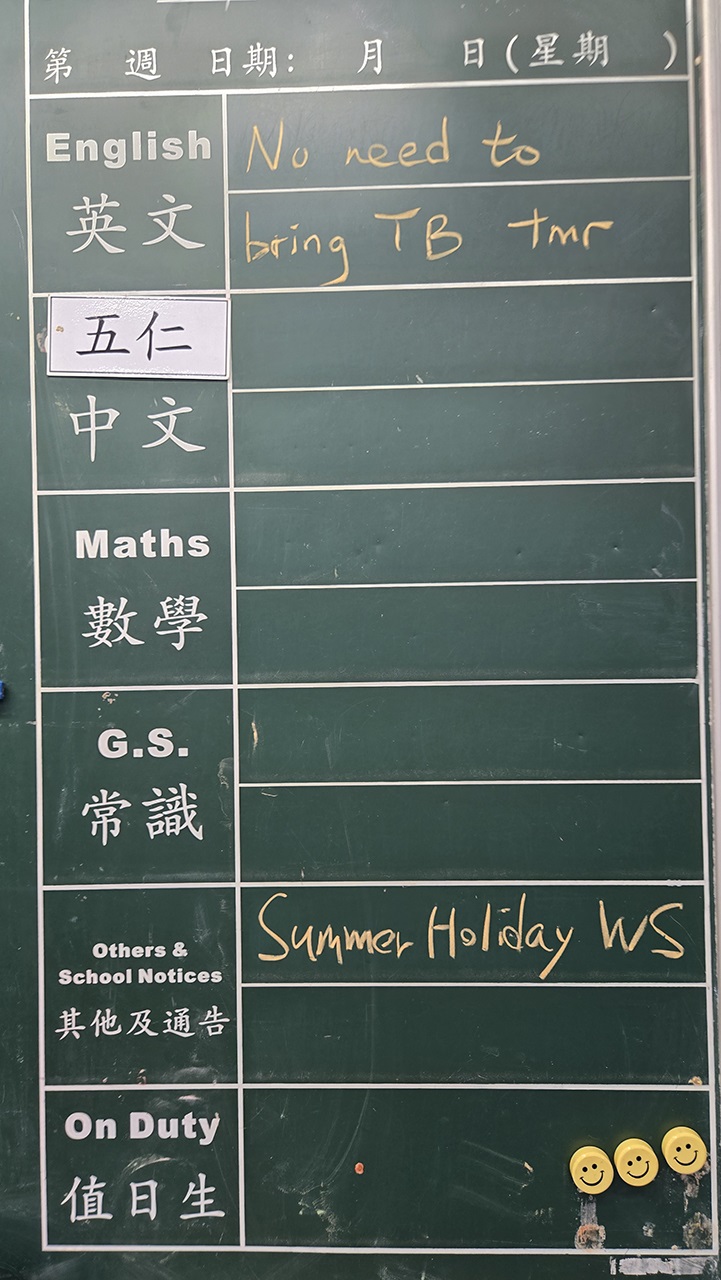 第 週 日期: 月 日(星期 )
English
英文
No need to
bring TB tmr
五仁
中文
Maths
數學
G.S.
常識
Others &
School Notices
其他及通告
Summer Holiday WS
On Duty
值日生